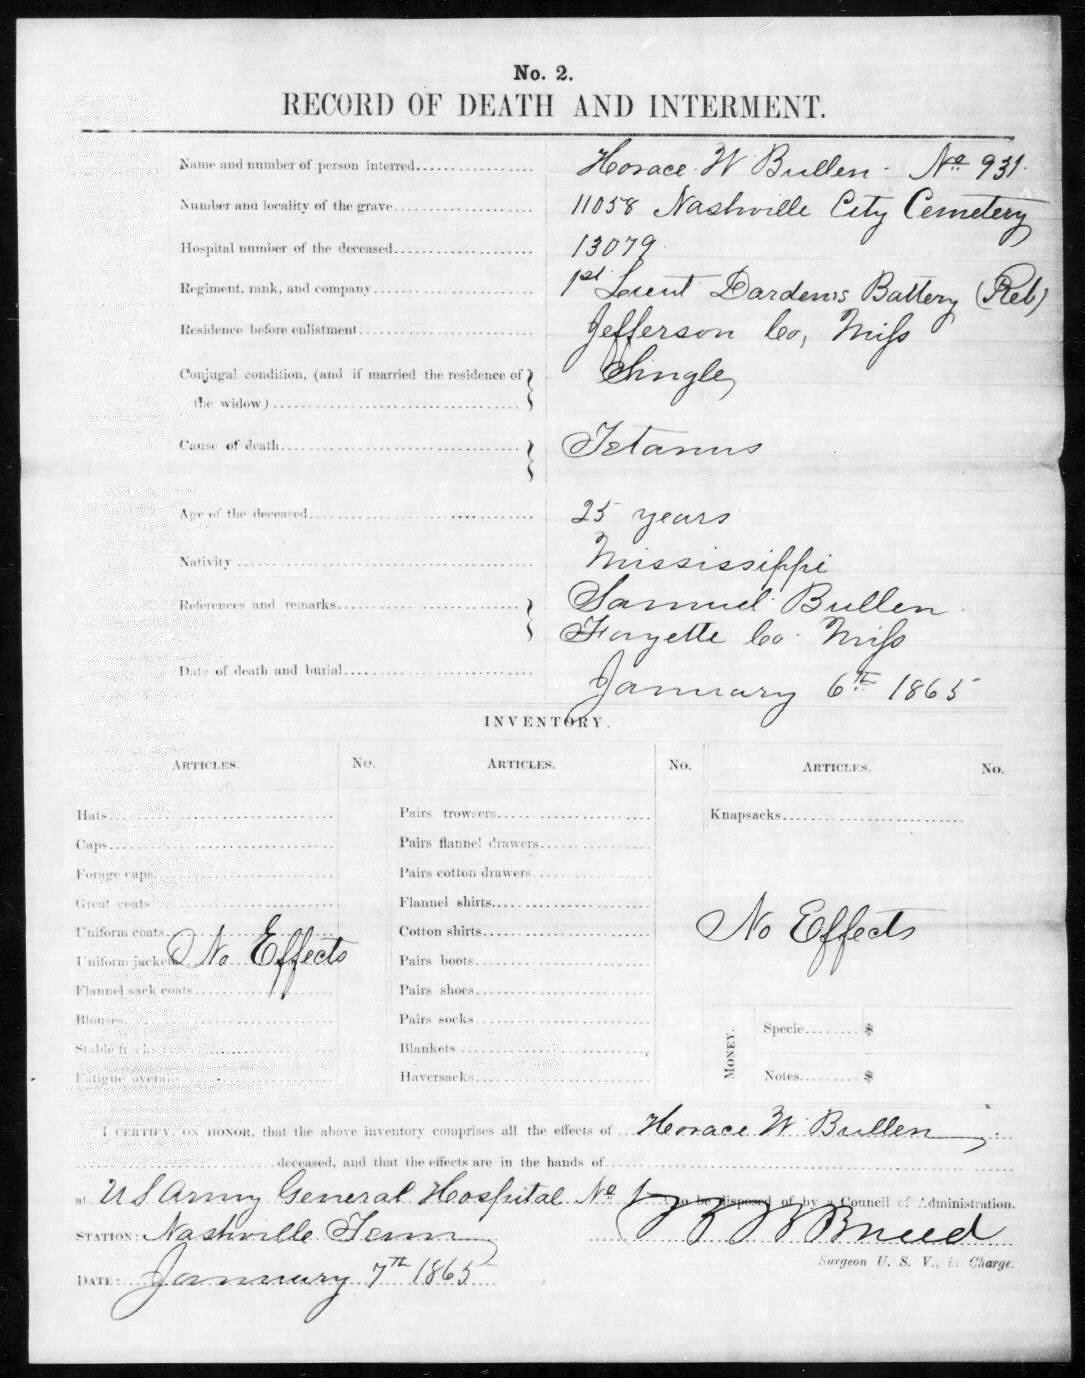 No. 2.
RECORD OF DEATH AND INTERMENT.
Name and number of person interred Horace W Bullen - No 931.
Number and locality of the grave 11058 Nashville City Cemetery
Hospital number of the deceased 13079
Regiment, rank, and company 1st Lieut Darden's Battery (Reb)
Residence before enlistment Jefferson Co, Miss
Conjugal condition, (and if married the residence of Single
the widow)
Cause of death Tetanus
Age of the deceased 25 years
Nativity Mississippi
References and remarks Samuel Bullen
Fayette Co. Miss
Date of death and burial January 6th 1865
INVENTORY.
ARTICLES. No. ARTICLES. No. ARTICLES. No.
Hats Pairs trowsers Knapsacks
Caps Pairs flannel drawers
Forage caps Pairs cotton drawers
Great coats Flannel shirts
Uniform coats Cotton shirts No Effects
Uniform jackets No Effects Pairs boots
Flannel sack coats Pairs shoes
Blouses Pairs socks MONEY. Specie $
Stable frocks Blankets
Fatigue overalls Haversacks Notes $
I CERTIFY, ON HONOR, that the above inventory comprises all the effects of Horace W. Bullen
deceased, and that the effects are in the hands of
at U S Army General Hospital No 1 to be disposed of by a Council of Administration.
STATION: Nashville Tenn
Surgeon U. S. V., in Charge.
DATE: January 7th 1865